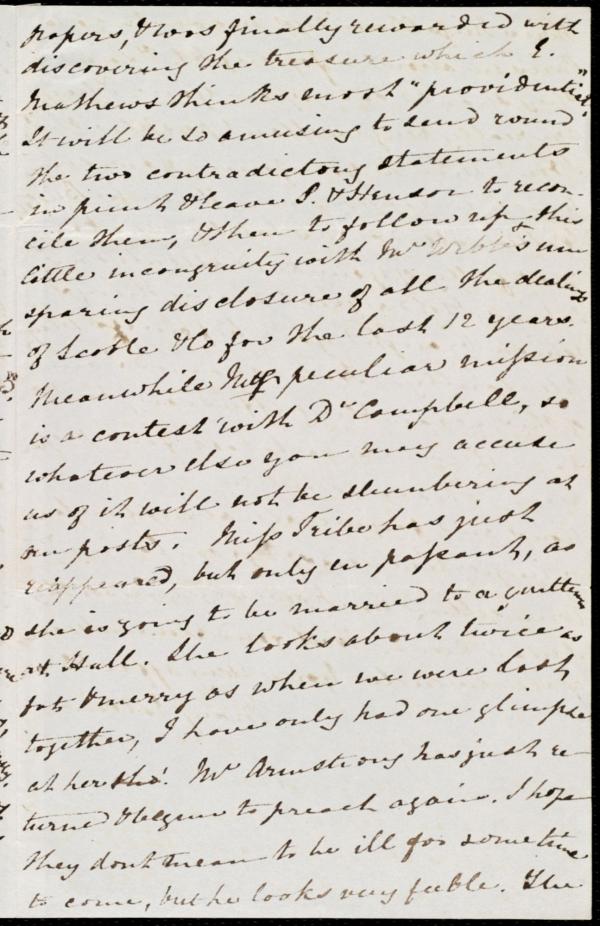 papers, & was finally rewarded with
discovering the treasure which E.
Mathews thinks most "providential".
It will be so amusing to send round
the two contradictory statements
in print & leave S. & Henson to recon-
cile them, & then to follow up this
little incongruity with Mr Webb's un
sparing disclosure of all the dealings
of Scoble & Co for the last 12 years.
Meanwhile my peculiar mission
is a contest with Dr Campbell, so
whatever else you may accuse
us of it will not be slumbering at
our posts. Miss Tribe has just
reappeared, but only en passant, as
she is going to be married to a gentleman
at Hull. She looks about twice as
fat & merry as when we were last
together, I have only had one glimpse
at her tho'. Mr Armstrong has just re-
turned & begun to preach again. I hope
they dont mean to be ill for some time
to come, but he looks very feeble. The